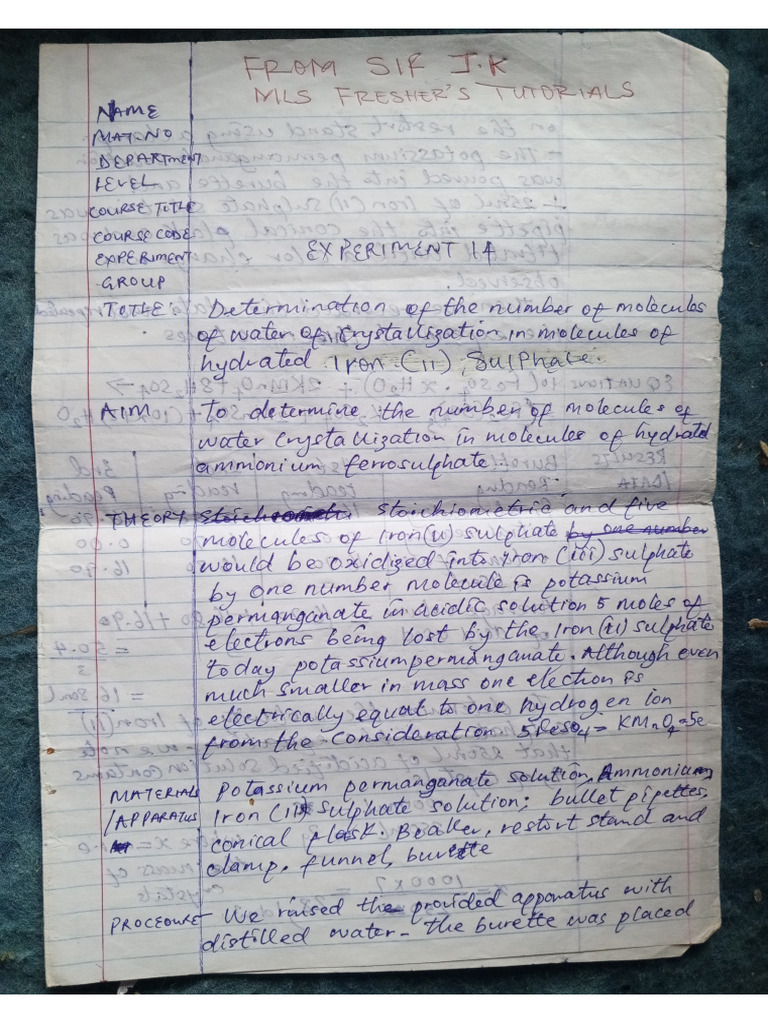 FROM SIR J.K
MLS FRESHER'S TUTORIALS
NAME
MAT.NO
DEPARTMENT
LEVEL
COURSE TITLE
COURSE CODE
EXPERIMENT EXPERIMENT 1A
GROUP
TITLE Determination of the number of molecules
of water of Crystallization in molecules of
hydrated Iron (ii), Sulphate.
AIM To determine the number of molecules of
water Crystallization in molecules of hydrated
ammonium ferrosulphate.
THEORY stoichiometric and five
molecules of iron(ii) sulphate by one number
would be oxidized into iron (iii) sulphate
by one number molecule is potassium
permanganate in acidic solution 5 moles of
electrons being lost by the Iron(ii) sulphate
today potassium permanganate. Although even
much smaller in mass one election is
electrically equat to one hydrogen ion
from the Consideration 5FeSO4 = KMnO4=5e
MATERIALS Potassium permanganate solution, Ammonium
/APPARATUS Iron (ii) sulphate solution; bullet pipettes,
conical flask. Beaker, restort stand and
clamp, funnel, burette
PROCEDURE - We rinsed the provided apparatus with
distilled water - the burette was placed